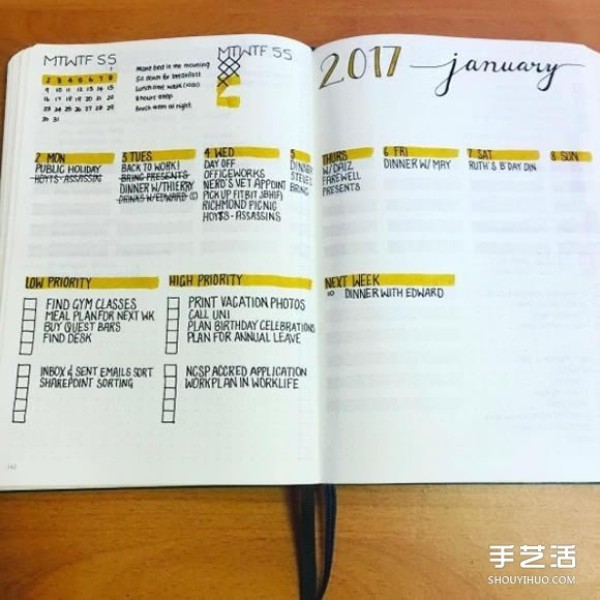 MTWTF SS
2 3 4 5 6 7 8
9 10 11 12 13 14 15
16 17 18 19 20 21 22
23 24 25 26 27 28 29
30 31
Make bed in the morning
Sit down for breakfast
Lunch time walk
8 hours sleep
Brush teeth at night
MTWTF SS
2017 january
2 MON
PUBLIC HOLIDAY
HOYTS - ASSASSINS
3 TUES
BACK TO WORK!
BRING PRESENTS
DINNER W/THIERRY
DRINKS W/EDWARD
4 WED
DAY OFF
OFFICEWORKS
NERO'S VET APPOINT
PICK UP FITBIT JBHIFI
RICHMOND PICNIC
HOYTS - ASSASSINS
5 THURS
DINNER W/DAIZ
FAREWELL
BRING PRESENTS
6 FRI
DINNER W/ MAY
7 SAT
RUTH'S B'DAY DIN
8 SUN
LOW PRIORITY
FIND GYM CLASSES
MEAL PLAN FOR NEXT WK
BUY QUEST BARS
FIND DESK
INBOX & SENT EMAILS SORT
SHAREPOINT SORTING
HIGH PRIORITY
PRINT VACATION PHOTOS
CALL UNI
PLAN BIRTHDAY CELEBRATIONS
PLAN FOR ANNUAL LEAVE
NCSP ACCRED APPLICATION
WORKPLAN IN WORKLIFE
NEXT WEEK
10 DINNER WITH EDWARD
手艺活
SHOUYIHUO.COM